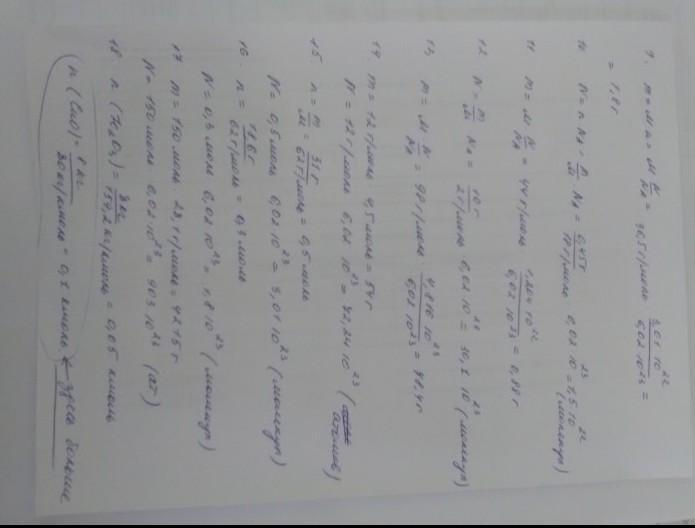 9. m = M n = M N/NA = 36,5 г/моль 3,01·10^22/6,02·10^23 =
= 1,8 г
10 N = n NA = m/M · NA = 0,45г/18г/моль 6,02 10^23 = 1,5 10^22 (молекул)
11 m = M N/NA = 44 г/моль 1,204·10^22/6,02 10^23 = 0,88 г
12 N = m/M NA = 10 г/2 г/моль 6,02·10^23 = 30,1 10^23 (молекул)
13, m = M N/NA = 98 г/моль 4,816·10^23/6,02 10^23 = 78,4 г
14 m = 12 г/моль · 4,5 моль = 54 г
N = 12 г/моль 6,02 10^23 = 72,24 10^23 (атомов)
15. n = m/M = 31 г/62 г/моль = 0,5 моль
N = 0,5 моль 6,02 10^23 = 3,01 10^23 (молекул)
16. n = 18,6 г/62 г/моль = 0,3 моль
N = 0,3 моль 6,02 10^23 = 1,8 10^23 (молекул)
17 m = 150 моль 28,1 г/моль = 4215 г
N = 150 моль 6,02 10^23 = 903 10^23 (ат)
18. n (Fe2O3) = 8 кг/159,2 кг/кмоль = 0,05 кмоль
n (CuO) = 8 кг/80 кг/кмоль = 0,1 кмоль ← здесь больше